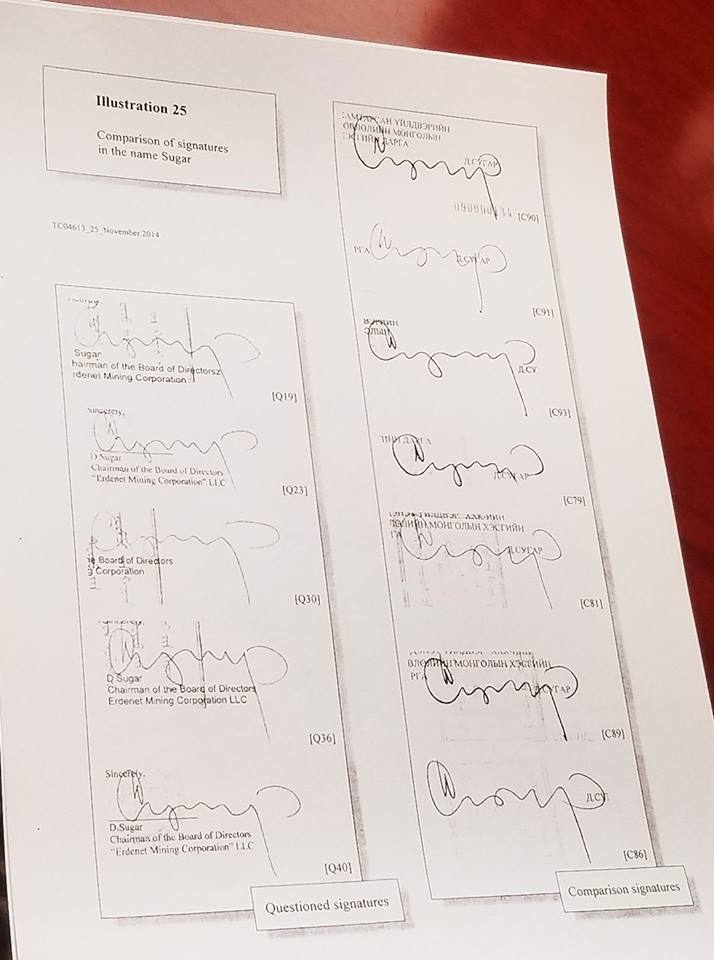 Illustration 25
Comparison of signatures
in the name Sugar
TC04613_25_November 2014
Sugar
hairman of the Board of Directorsz
rdenet Mining Corporation
[Q19]
Sincerely,
D.Sugar
Chairman of the Board of Directors
"Erdenet Mining Corporation" LLC
[Q23]
Board of Directors
g Corporation
[Q30]
D.Sugar
Chairman of the Board of Directors
Erdenet Mining Corporation LLC
[Q36]
Sincerely,
D.Sugar
Chairman of the Board of Directors
"Erdenet Mining Corporation" LLC
[Q40]
Questioned signatures
ҮЙЛДВЭРИЙН
МОНГОЛЫН
ДАРГА
Д.СУГАР
[C90]
РГА
Д.СУГАР
[C91]
Д.СУ
[C93]
Д.СУГАР
[C79]
МОНГОЛЫН ХЭСГИЙН
Д.СУГАР
[C81]
МОНГОЛЫН ХЭСГИЙН
РГА
Д.СУГАР
[C89]
Д.СУГ
[C86]
Comparison signatures